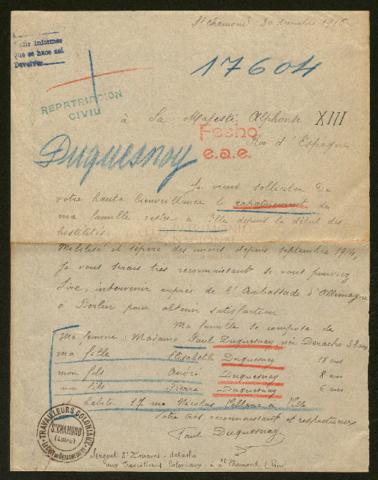 St Chamond 30 1915
Pedir informes
que se hace así
Devolver
17604
REPATRIACION
CIVIL
à Sa Majesté Alphonse XIII
Roi d'Espagne
Fecho
e.a.e.
Duquesnoy
Je viens solliciter de
votre haute bienveillance le rapatriement de
ma famille restée à Lille depuis le début des
hostilités.
Mobilisé et séparé des miens depuis septembre 1914,
Je vous serais très reconnaissant si vous pouviez
Sire, intervenir auprès de l'Ambassade d'Allemagne
à Berlin pour obtenir satisfaction
Ma famille se compose de
Ma femme: Madame Paul Duquesnoy née 38 ans
ma fille Elisabeth Duquesnoy 18 ans
mon fils André Duquesnoy 8 ans
un fils Pierre Duquesnoy 6 ans
habite 17 rue Nicolas Leblanc à Lille
Votre très reconnaissant et respectueux
Paul Duquesnoy
TRAVAILLEURS COLONIAUX
St CHAMOND
(Loire)
Sergent détaché
aux Travailleurs Coloniaux à St Chamond (Loire)